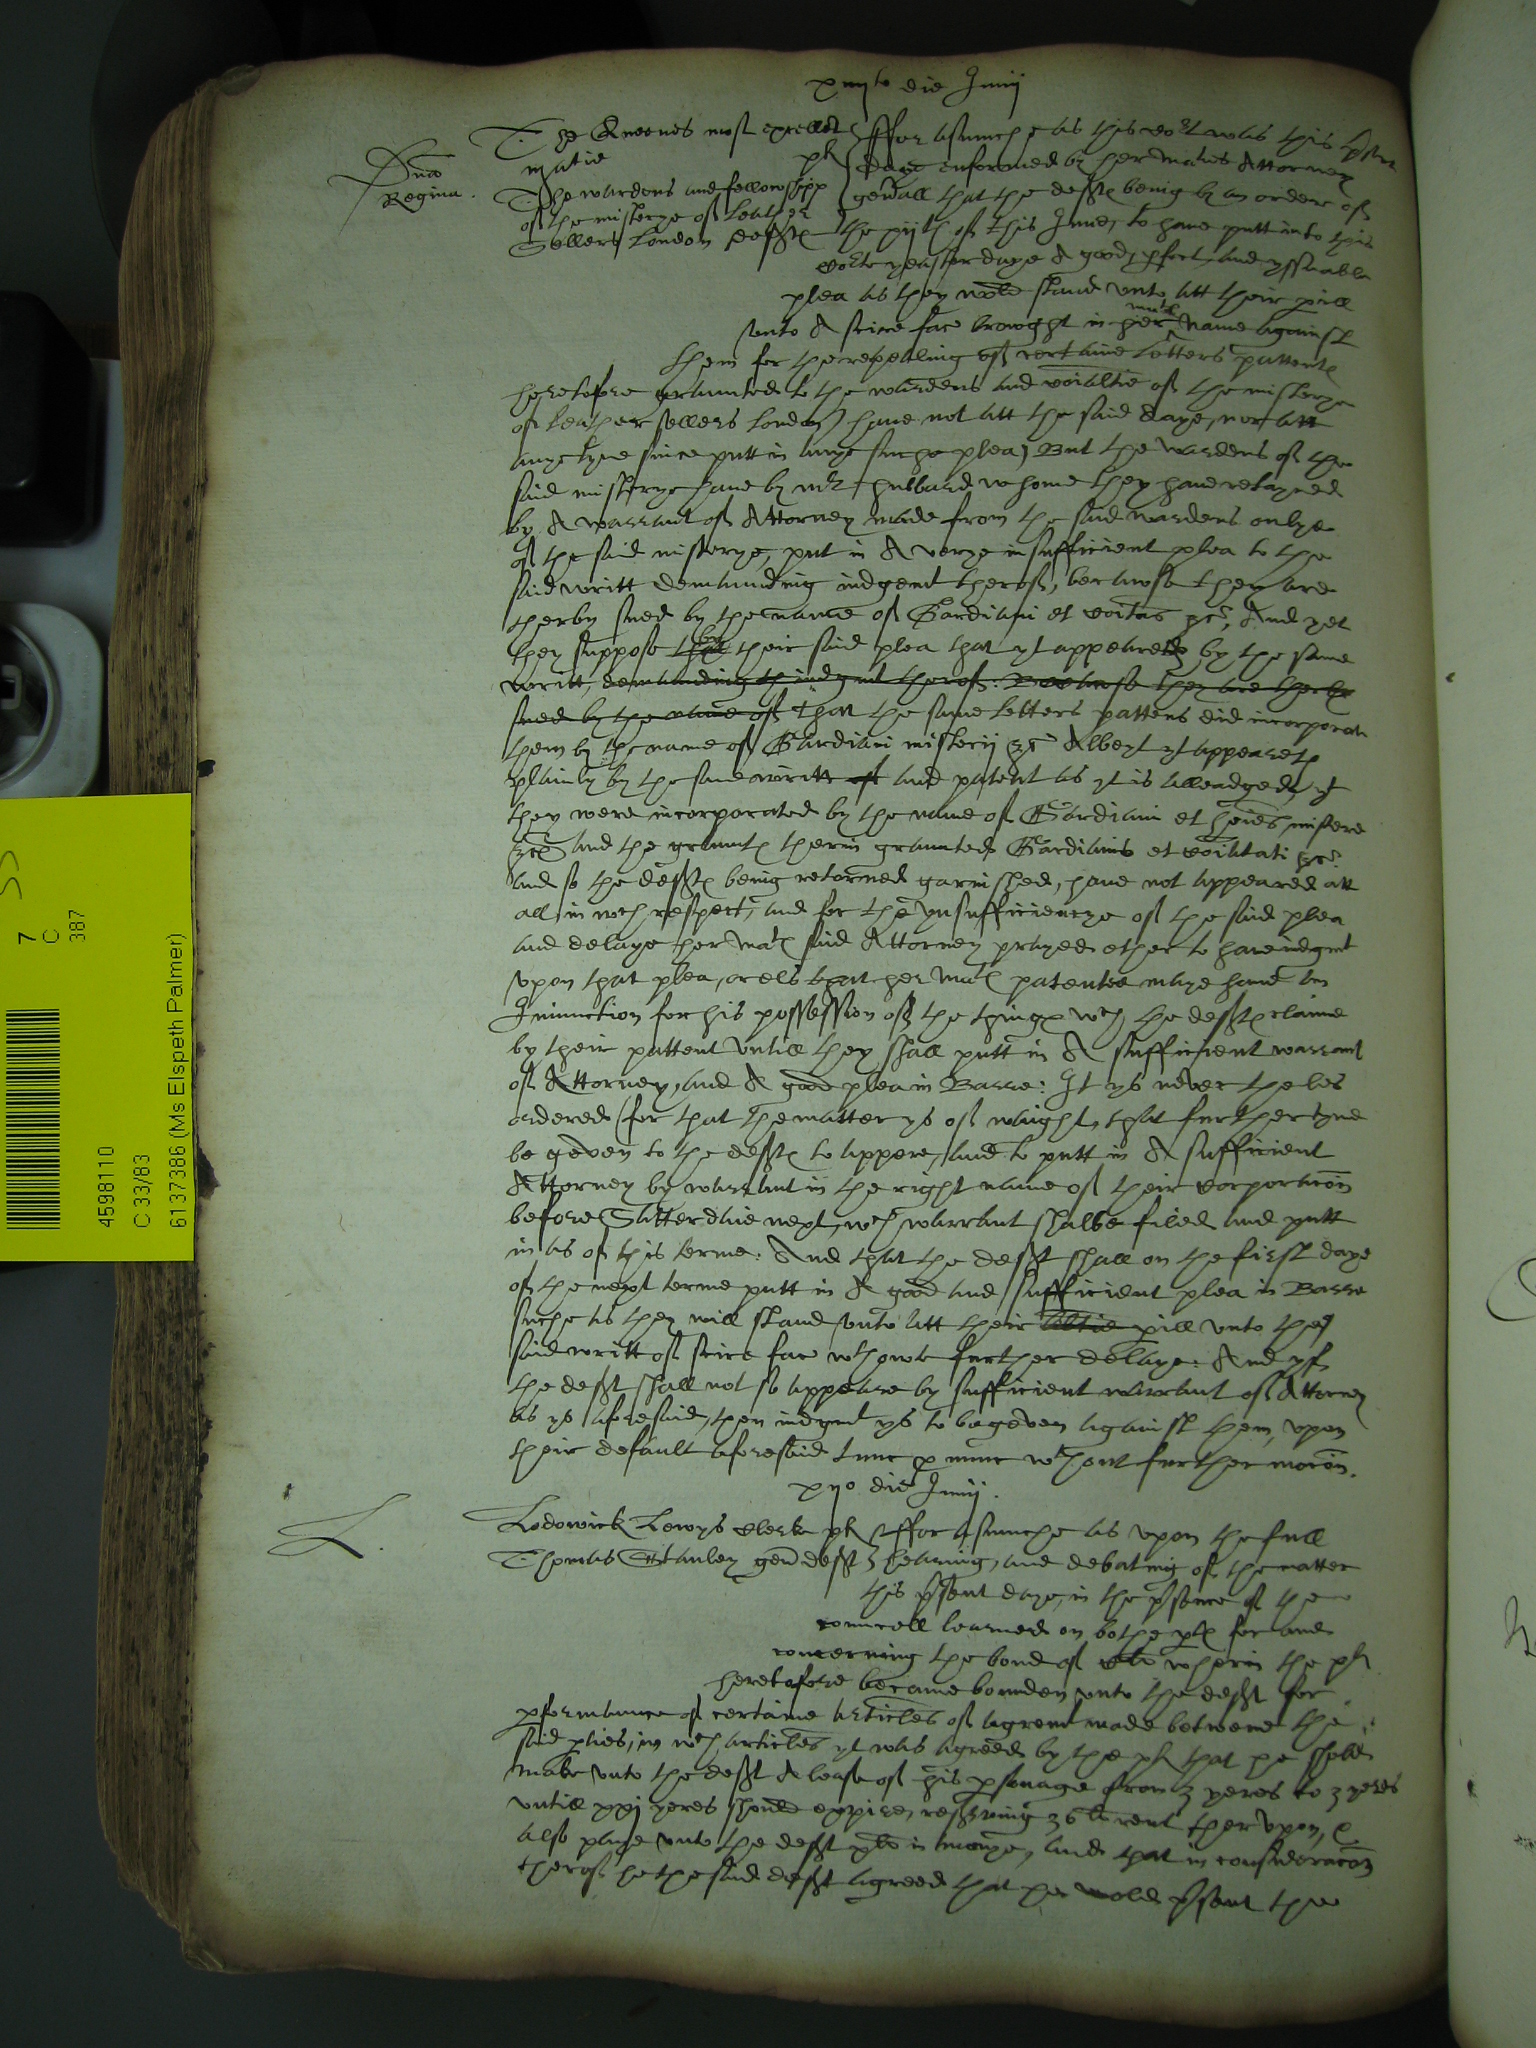 xiiijto die Junij
Dna Regina.
The Queenes most excellent matie plt
The wardens and fellowshipp
of the misterye of Leather
Sellers London defftes
ffor asmuche as this cort was this pnte
daye enformed by her Mats Attorney
gen'all that the defftes being by an order of
the xijth of this June, to have putt into this
cort yeasterdaye A good, pfect, and yssuable
plea as they wold stand unto att their pill
unto A scire fac browght in her mats name against
them for the repealing of certaine letters pattents
heretofore graunted to the wardens and coialtie of the misterye
of leather sellers London) have not att the said daye, nor att
anye tyme since putt in anye suche plea) But the wardens of the
said misterye have by mr Hubbard whome they have retayned
by A warrant of Attorney made from the said wardens onlye
of the said misterye, put in A verye insufficient plea to the
said writt demaunding iudgemt therof, because they are
therby sued by the name of Gardiani et coitas &c, And yet
they suppose by their said plea that yt appeareth by the same
writt, demaunding th iudgmt therof: Because they are therby
sued by the name of that the same letters pattens did incorporate
them by the name of Gardiani misterij &c Albeyt yt appeareth
plainly by the same writt of and patent as yt is alleadged, yt
they were incorporated by the name of Gardiani et hoies mistere
&c And the graunts therin graunted Gardianis et coialtati &c.
And so the defftes being retorned garnished, have not appeared att
all in wch respect, and for the ynsufficiencye of the said plea
and delaye her Mats said Attorney prayed ether to have iudgmt
upon that plea, or els that her Mats patentee maye have an
Iniunction for his possession of the things wch the defftes claime
by their pattent untill they shall putt in A sufficient warrant
of Attorney, and A good plea in Barre: It ys never the les
ordered (for that the matter ys of waight, that further tyme
be geven to the defftes to appere, and to putt in A sufficient
Attorney by warrant in the right name of their corporacon
before Satterdaie next, wch warrant shalbe filed and putt
in as of this terme: And that the defft shall on the first daye
of the next terme putt in A good and sufficient plea in Barre
suche as they will stand unto att their pill unto the
said writt of scire fac wthowt further delaye: And yf
the defft shall not so appeare by sufficient warrant of Attorney
as ys aforesaid, then iudgmt ys to be geven against them, upon
their default aforesaid tunc p nunc wthout further mocon.
xvo die Junij.
L.
Lodowick Lewys clerke plt
Thomas Stanley gen defft
ffor asmuche as upon the full
hearing, and debating of the matter
this psent daye, in the psence of the
councell learned on bothe pts for and
concerning the bond of cli wherin the plt
heretofore became bounden unto the defft for
pformaunce of certaine articles of agremt made betwene the
said pties, in wch articles yt was agreed by the plt that he shold
make unto the defft A lease of his psonage from 3 yeres to 3 yeres
untill xxj yeres should expire, reserving 36 li rent therupon, &
also paye unto the defft xli in monye, and that in consideracon
therof he the said defft agreed that he wold psent the
4598110
C 33/83
6137386 (Ms Elspeth Palmer)
7
C
387